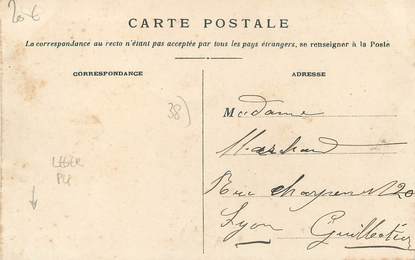 20€
CARTE POSTALE
La correspondance au recto n'étant pas acceptée par tous les pays étrangers, se renseigner à la Poste
CORRESPONDANCE
ADRESSE
38)
Madame
LEGER
PLI
Rue 20
Lyon Guillotière